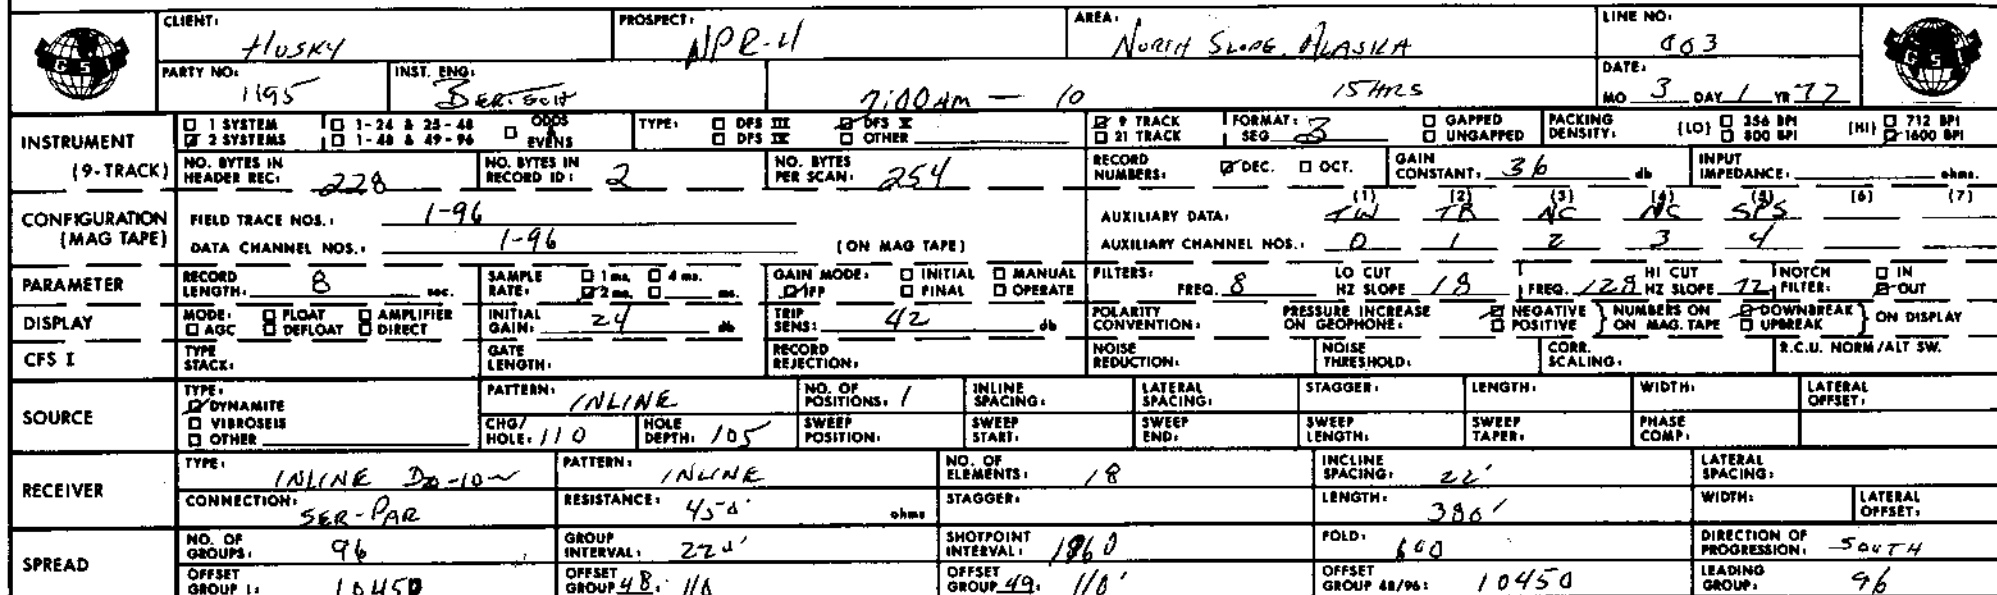 CLIENT: HUSKY PROSPECT: NPR-4 AREA: NORTH SLOPE, ALASKA LINE NO: 003
GSI GSI
PARTY NO: 1195 INST. ENG: 7:00 AM — 10 15 HRS DATE: MO 3 DAY 1 YR 77
INSTRUMENT (9-TRACK) 1 SYSTEM 1-24 & 25-48 ODDS & EVENS TYPE: DFS III DFS V 9 TRACK FORMAT: GAPPED PACKING DENSITY: (LO) 356 BPI (HI) 712 BPI
2 SYSTEMS 1-48 & 49-96 DFS IV OTHER 21 TRACK SEG B UNGAPPED 800 BPI 1600 BPI
NO. BYTES IN HEADER REC: 228 NO. BYTES IN RECORD ID: 2 NO. BYTES PER SCAN: 254 RECORD NUMBERS: DEC. OCT. GAIN CONSTANT: 36 db INPUT IMPEDANCE: ohms.
CONFIGURATION (MAG TAPE) FIELD TRACE NOS.: 1-96 AUXILIARY DATA: (1) TW (2) TB (3) NC (4) NC (5) SPS (6) (7)
DATA CHANNEL NOS.: 1-96 (ON MAG TAPE) AUXILIARY CHANNEL NOS.: 0 1 2 3 4
PARAMETER RECORD LENGTH: 8 sec. SAMPLE RATE: 1 ms. 4 ms. 2 ms. ms. GAIN MODE: INITIAL MANUAL IFP FINAL OPERATE FILTERS: FREQ. 8 LO CUT HZ SLOPE 18 FREQ. 128 HI CUT HZ SLOPE 72 NOTCH FILTER: IN OUT
DISPLAY MODE: FLOAT AMPLIFIER AGC DEFLOAT DIRECT INITIAL GAIN: 24 db TRIP SENS: 42 db POLARITY CONVENTION: PRESSURE INCREASE ON GEOPHONE: NEGATIVE POSITIVE } NUMBERS ON ON MAG. TAPE DOWNBREAK UPBREAK } ON DISPLAY
CFS I TYPE STACK: GATE LENGTH: RECORD REJECTION: NOISE REDUCTION: NOISE THRESHOLD: CORR. SCALING: R.C.U. NORM/ALT SW.
SOURCE TYPE: DYNAMITE VIBROSEIS OTHER PATTERN: INLINE NO. OF POSITIONS: 1 INLINE SPACING: LATERAL SPACING: STAGGER: LENGTH: WIDTH: LATERAL OFFSET:
CHG/HOLE: 110 HOLE DEPTH: 105 SWEEP POSITION: SWEEP START: SWEEP END: SWEEP LENGTH: SWEEP TAPER: PHASE COMP:
RECEIVER TYPE: INLINE PATTERN: INLINE NO. OF ELEMENTS: 18 INCLINE SPACING: 22' LATERAL SPACING:
CONNECTION: SER-PAR RESISTANCE: 450 ohms STAGGER: LENGTH: 380' WIDTH: LATERAL OFFSET:
SPREAD NO. OF GROUPS: 96 GROUP INTERVAL: 220' SHOTPOINT INTERVAL: FOLD: 600 DIRECTION OF PROGRESSION: SOUTH
OFFSET GROUP 1: 10450 OFFSET GROUP 48: 110 OFFSET GROUP 49: 110' OFFSET GROUP 48/96: 10450 LEADING GROUP: 96